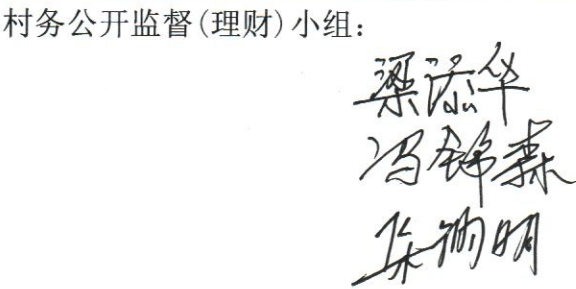 村务公开监督(理财)小组:
梁添华
冯锦森